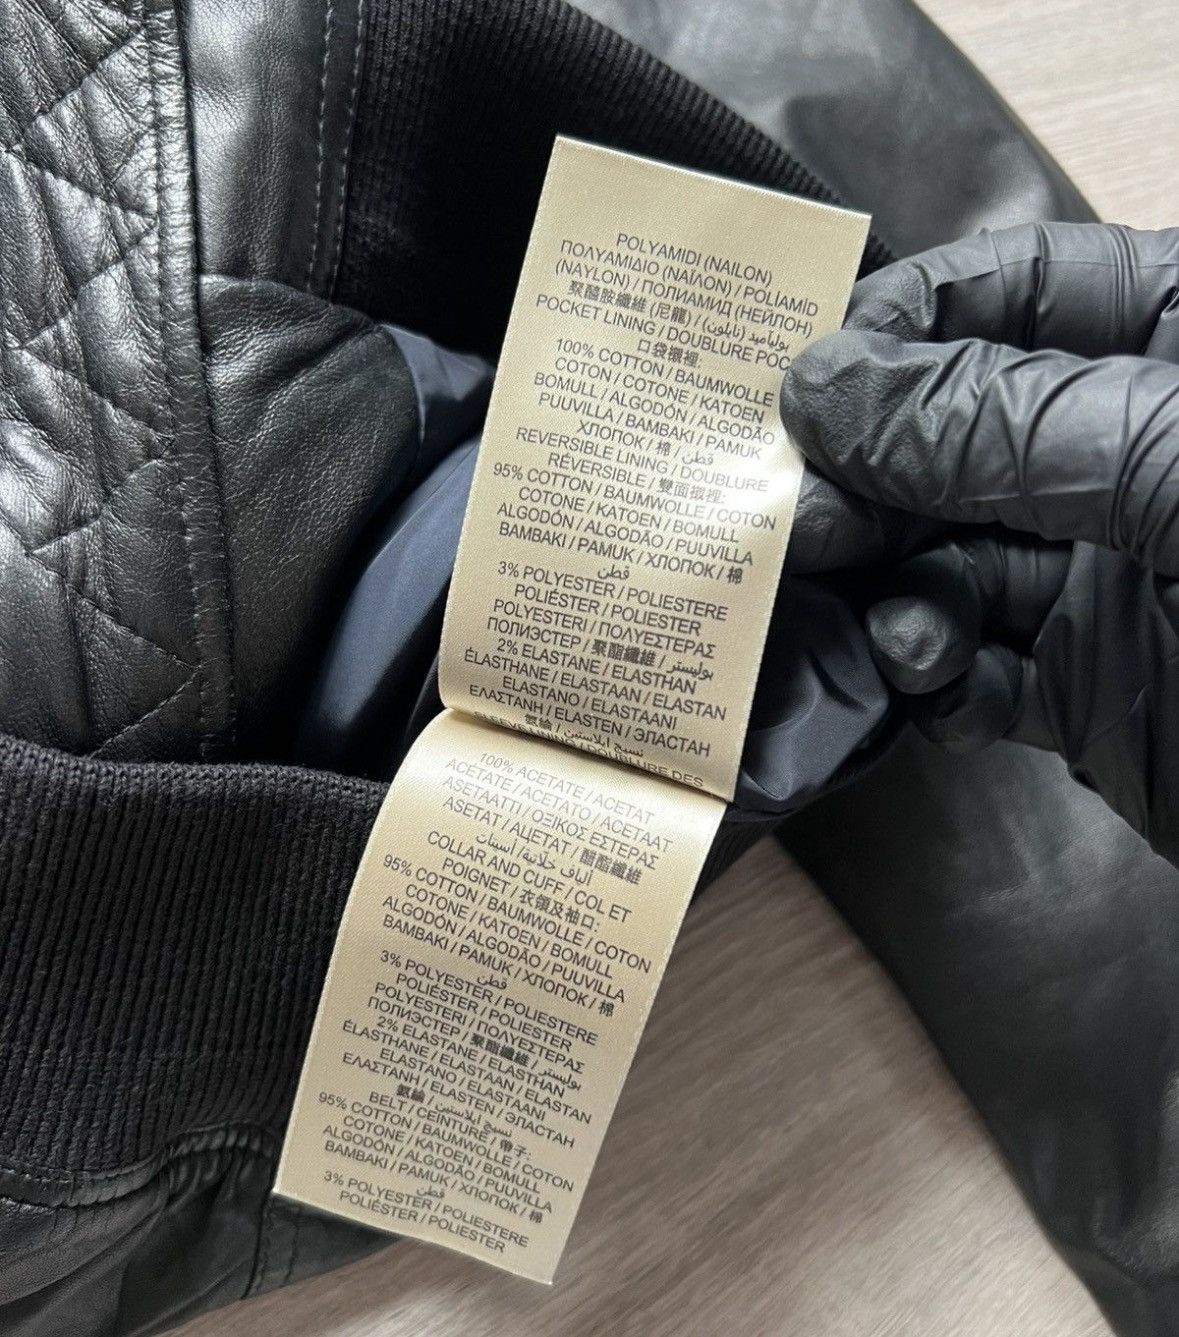 POLYAMIDI (NAILON)
ΠΟΛΥΑΜΙΔΙΟ (ΝΑΪΛΟΝ) / POLÍAMID
(NAYLON) / ПОЛИАМИД (НЕЙЛОН)
聚醯胺纖維 (尼龍) / بولياميد (نايلون)
POCKET LINING / DOUBLURE POC
口袋襯裡:
100% COTTON / BAUMWOLLE
COTON / COTONE / KATOEN
BOMULL / ALGODÓN / ALGODÃO
PUUVILLA / BAMBAKI / PAMUK
ХЛОПОК / 棉 / قطن
REVERSIBLE LINING / DOUBLURE
RÉVERSIBLE / 雙面襯裡:
95% COTTON / BAUMWOLLE / COTON
COTONE / KATOEN / BOMULL
ALGODÓN / ALGODÃO / PUUVILLA
BAMBAKI / PAMUK / ХЛОПОК / 棉
قطن
3% POLYESTER / POLIESTERE
POLIÉSTER / POLIESTER
POLYESTERI / ΠΟΛΥΕΣΤΕΡΑΣ
ПОЛИЭСТЕР / 聚酯纖維 / بوليستر
2% ELASTANE / ELASTHAN
ÉLASTHANE / ELASTAAN / ELASTAN
ELASTANO / ELASTAANI
ΕΛΑΣΤΑΝΗ / ELASTEN / ЭЛАСТАН
氨綸 / نسيج ايلاستين
SLEEVE LINING / DOUBLURE DES
100% ACETATE / ACETAT
ACÉTATE / ACETATO / ACETAAT
ASETAATTI / ΟΞΙΚΟΣ ΕΣΤΕΡΑΣ
ASETAT / АЦЕТАТ / 醋酯纖維
ألياف خلاتية / أسيتات
COLLAR AND CUFF / COL ET
POIGNET / 衣領及袖口:
95% COTTON / BAUMWOLLE / COTON
COTONE / KATOEN / BOMULL
ALGODÓN / ALGODÃO / PUUVILLA
BAMBAKI / PAMUK / ХЛОПОК / 棉
قطن
3% POLYESTER / POLIESTERE
POLIÉSTER / POLIESTER
POLYESTERI / ΠΟΛΥΕΣΤΕΡΑΣ
ПОЛИЭСТЕР / 聚酯纖維 / بوليستر
2% ELASTANE / ELASTHAN
ÉLASTHANE / ELASTAAN / ELASTAN
ELASTANO / ELASTAANI
ΕΛΑΣΤΑΝΗ / ELASTEN / ЭЛАСТАН
氨綸 / نسيج ايلاستين
BELT / CEINTURE / 帶子:
95% COTTON / BAUMWOLLE / COTON
COTONE / KATOEN / BOMULL
ALGODÓN / ALGODÃO / PUUVILLA
BAMBAKI / PAMUK / ХЛОПОК / 棉
قطن
3% POLYESTER / POLIESTERE
POLIÉSTER / POLIESTER